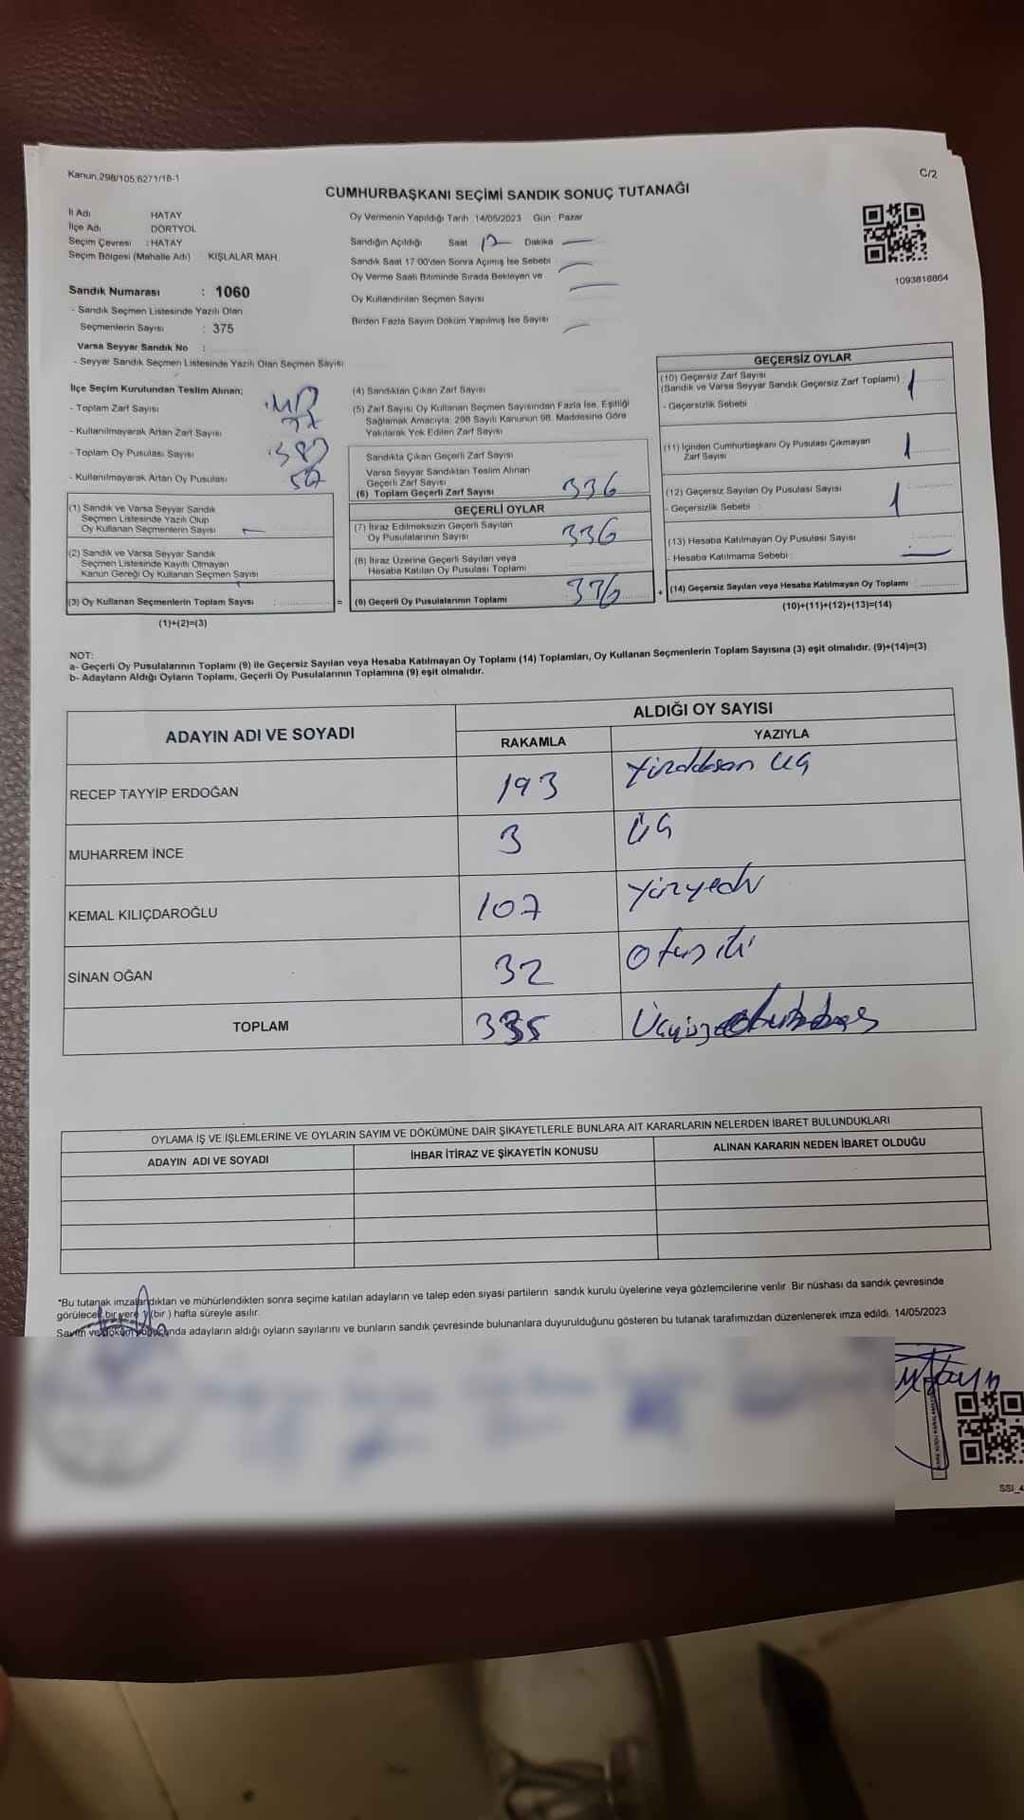 Kanun.298/105,6271/18-1
C/2
CUMHURBAŞKANI SEÇİMİ SANDIK SONUÇ TUTANAĞI
İl Adı HATAY
İlçe Adı DÖRTYOL
Seçim Çevresi : HATAY
Seçim Bölgesi (Mahalle Adı) KIŞLALAR MAH.
Oy Vermenin Yapıldığı Tarih :14/05/2023 Gün : Pazar
Sandığın Açıldığı Saat Dakika
Sandık Saat 17:00'den Sonra Açılmış İse Sebebi
Oy Verme Saati Bitiminde Sırada Bekleyen ve
Oy Kullandırılan Seçmen Sayısı
Birden Fazla Sayım Döküm Yapılmış İse Sayısı
1093818864
Sandık Numarası : 1060
- Sandık Seçmen Listesinde Yazılı Olan
Seçmenlerin Sayısı : 375
Varsa Seyyar Sandık No :
- Seyyar Sandık Seçmen Listesinde Yazılı Olan Seçmen Sayısı
İlçe Seçim Kurulundan Teslim Alınan;
- Toplam Zarf Sayısı
- Kullanılmayarak Artan Zarf Sayısı
- Toplam Oy Pusulası Sayısı
- Kullanılmayarak Artan Oy Pusulası
(1) Sandık ve Varsa Seyyar Sandık
Seçmen Listesinde Yazılı Olup
Oy Kullanan Seçmenlerin Sayısı
(2) Sandık ve Varsa Seyyar Sandık
Seçmen Listesinde Kayıtlı Olmayan
Kanun Gereği Oy Kullanan Seçmen Sayısı
(3) Oy Kullanan Seçmenlerin Toplam Sayısı =
(1)+(2)=(3)
(4) Sandıktan Çıkan Zarf Sayısı
(5) Zarf Sayısı Oy Kullanan Seçmen Sayısından Fazla İse, Eşitliği
Sağlamak Amacıyla, 298 Sayılı Kanunun 98. Maddesine Göre
Yakılarak Yok Edilen Zarf Sayısı
Sandıkta Çıkan Geçerli Zarf Sayısı
Varsa Seyyar Sandıktan Teslim Alınan
Geçerli Zarf Sayısı
(6) Toplam Geçerli Zarf Sayısı 336
GEÇERLİ OYLAR
(7) İtiraz Edilmeksizin Geçerli Sayılan
Oy Pusulalarının Sayısı 336
(8) İtiraz Üzerine Geçerli Sayılan veya
Hesaba Katılan Oy Pusulası Toplamı
(9) Geçerli Oy Pusulalarının Toplamı 336 +
GEÇERSİZ OYLAR
(10) Geçersiz Zarf Sayısı
(Sandık ve Varsa Seyyar Sandık Geçersiz Zarf Toplamı) 1
- Geçersizlik Sebebi
(11) İçinden Cumhurbaşkanı Oy Pusulası Çıkmayan
Zarf Sayısı 1
(12) Geçersiz Sayılan Oy Pusulası Sayısı 1
- Geçersizlik Sebebi
(13) Hesaba Katılmayan Oy Pusulası Sayısı
- Hesaba Katılmama Sebebi :
(14) Geçersiz Sayılan veya Hesaba Katılmayan Oy Toplamı
(10)+(11)+(12)+(13)=(14)
NOT:
a- Geçerli Oy Pusulalarının Toplamı (9) ile Geçersiz Sayılan veya Hesaba Katılmayan Oy Toplamı (14) Toplamları, Oy Kullanan Seçmenlerin Toplam Sayısına (3) eşit olmalıdır. (9)+(14)=(3)
b- Adayların Aldığı Oyların Toplamı, Geçerli Oy Pusulalarının Toplamına (9) eşit olmalıdır.
ADAYIN ADI VE SOYADI
ALDIĞI OY SAYISI
RAKAMLA YAZIYLA
RECEP TAYYİP ERDOĞAN 193 Yüzdoksan üç
MUHARREM İNCE 3 üç
KEMAL KILIÇDAROĞLU 107 Yüzyedi
SİNAN OĞAN 32 Otuz iki
TOPLAM 335 Üçyüzotuzbeş
OYLAMA İŞ VE İŞLEMLERİNE VE OYLARIN SAYIM VE DÖKÜMÜNE DAİR ŞİKAYETLERLE BUNLARA AİT KARARLARIN NELERDEN İBARET BULUNDUKLARI
ADAYIN ADI VE SOYADI İHBAR İTİRAZ VE ŞİKAYETİN KONUSU ALINAN KARARIN NEDEN İBARET OLDUĞU
*Bu tutanak imzalandıktan ve mühürlendikten sonra seçime katılan adayların ve talep eden siyasi partilerin sandık kurulu üyelerine veya gözlemcilerine verilir. Bir nüshası da sandık çevresinde
görülecek bir yere 1 (bir) hafta süreyle asılır.
Sayım ve döküm sonucunda adayların aldığı oyların sayılarını ve bunların sandık çevresinde bulunanlara duyurulduğunu gösteren bu tutanak tarafımızdan düzenlenerek imza edildi. 14/05/2023